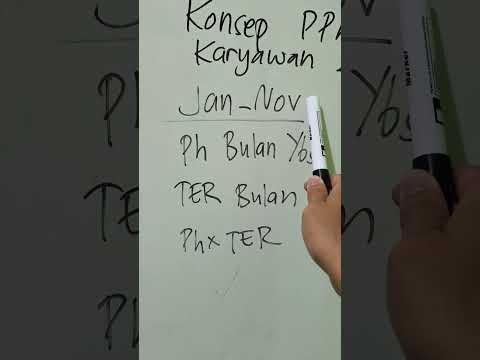 Konsep PPh
Karyawan
Jan-Nov
Ph Bulan Ybs
TER Bulan
Ph x TER